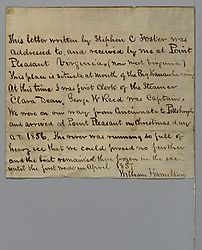 This letter written by Stephen C Foster was
addressed to, and received by me at Point
Pleasant Virginia, (now West Virginia)
This place is situate at mouth of the Big Kanawha river
At this time I was first Clerk of the Steamer
Clara Dean, Geo W Reed was Captain.
We were on our way from Cincinnati to Pittsburgh
and arrived at Point Pleasant on Christmas day
A.D. 1856. The river was running so full of
heavy ice that we could proceed no further
and the boat remained there frozen in the ice
until the first week in April 1857
William Hamilton